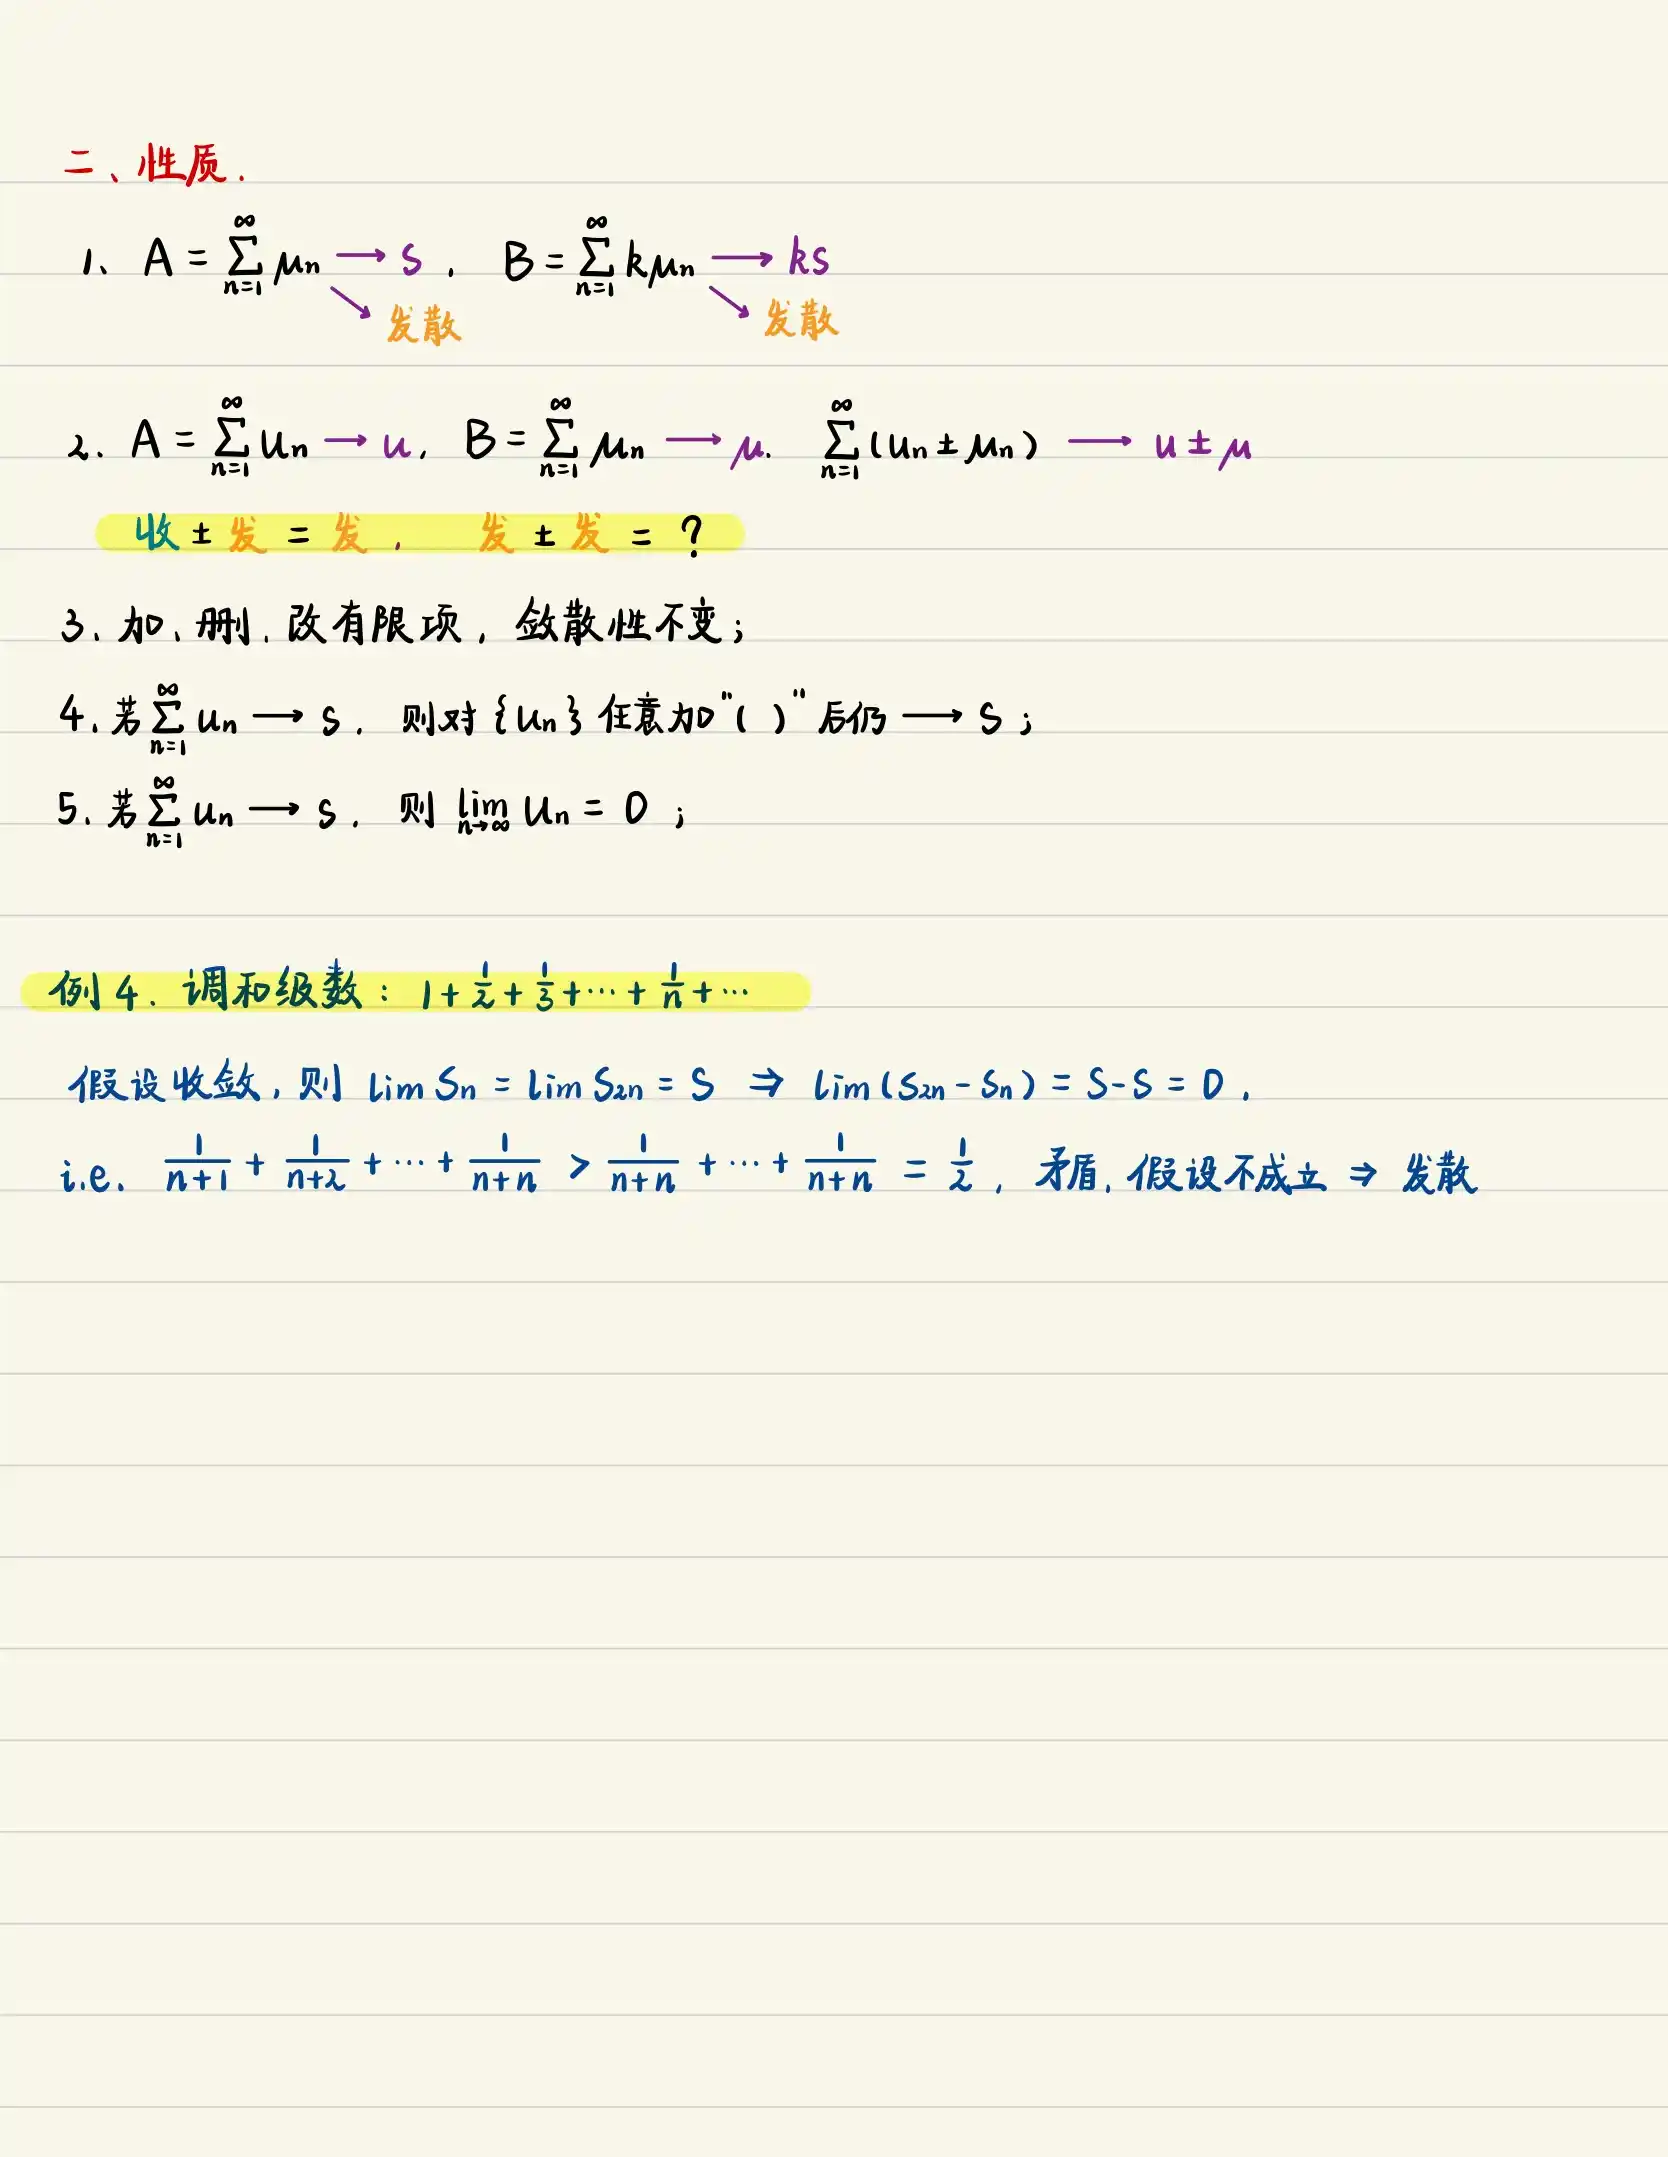 二、性质.
1、 A = ∑_{n=1}^{∞} μₙ → s , B = ∑_{n=1}^{∞} kμₙ → ks
↘ 发散 ↘ 发散
2. A = ∑_{n=1}^{∞} uₙ → u, B = ∑_{n=1}^{∞} μₙ → μ. ∑_{n=1}^{∞} (uₙ ± μₙ) → u ± μ
收 ± 发 = 发 , 发 ± 发 = ?
3、加、删、改有限项, 敛散性不变;
4、若 ∑_{n=1}^{∞} uₙ → s . 则对 {uₙ} 任意加 "( )" 后仍 → s ;
5. 若 ∑_{n=1}^{∞} uₙ → s . 则 lim_{n→∞} uₙ = 0 ;
例4. 调和级数: 1 + 1/2 + 1/3 + ⋯ + 1/n + ⋯
假设收敛, 则 lim Sₙ = lim S₂ₙ = S ⇒ lim (S₂ₙ - Sₙ) = S - S = 0 .
i.e. 1/(n+1) + 1/(n+2) + ⋯ + 1/(n+n) > 1/(n+n) + ⋯ + 1/(n+n) = 1/2 , 矛盾, 假设不成立 ⇒ 发散